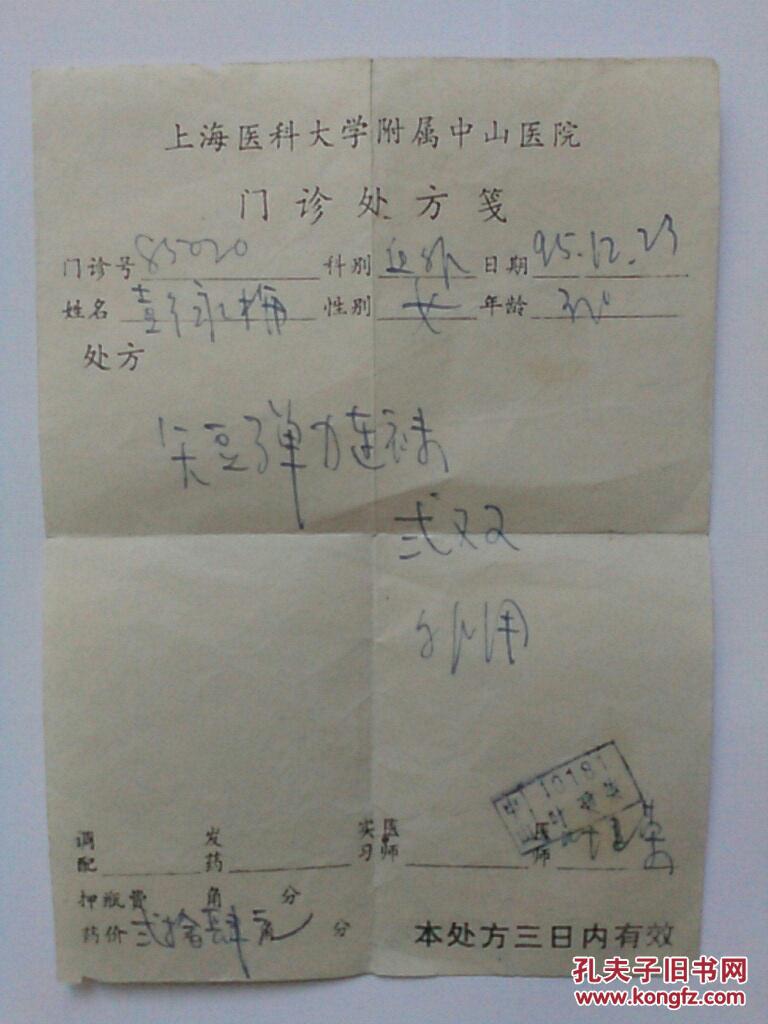 上海医科大学附属中山医院
门诊处方笺
门诊号 85020 科别 血外 日期 95.12.23
姓名 性别 女 年龄
处方
弹力连裤袜
弍双
外用
调配 发药 实习医师 医师
10181
押瓶费 角 分
药价 弍拾肆元 分
本处方三日内有效
孔夫子旧书网
www.kongfz.com